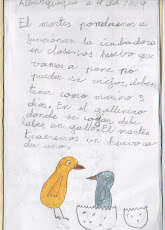 Alburquerque a 9 del 2009
El martes pondremos a
funcionar la incubadora
en clase. Los huevos que
vamos a pone no
pueden ser viejos, deben
tener como maximo 9
dias. En el gallinero
donde se cogan debe
aber un gallo. El martes
traeremos un huevo ca
da uno.